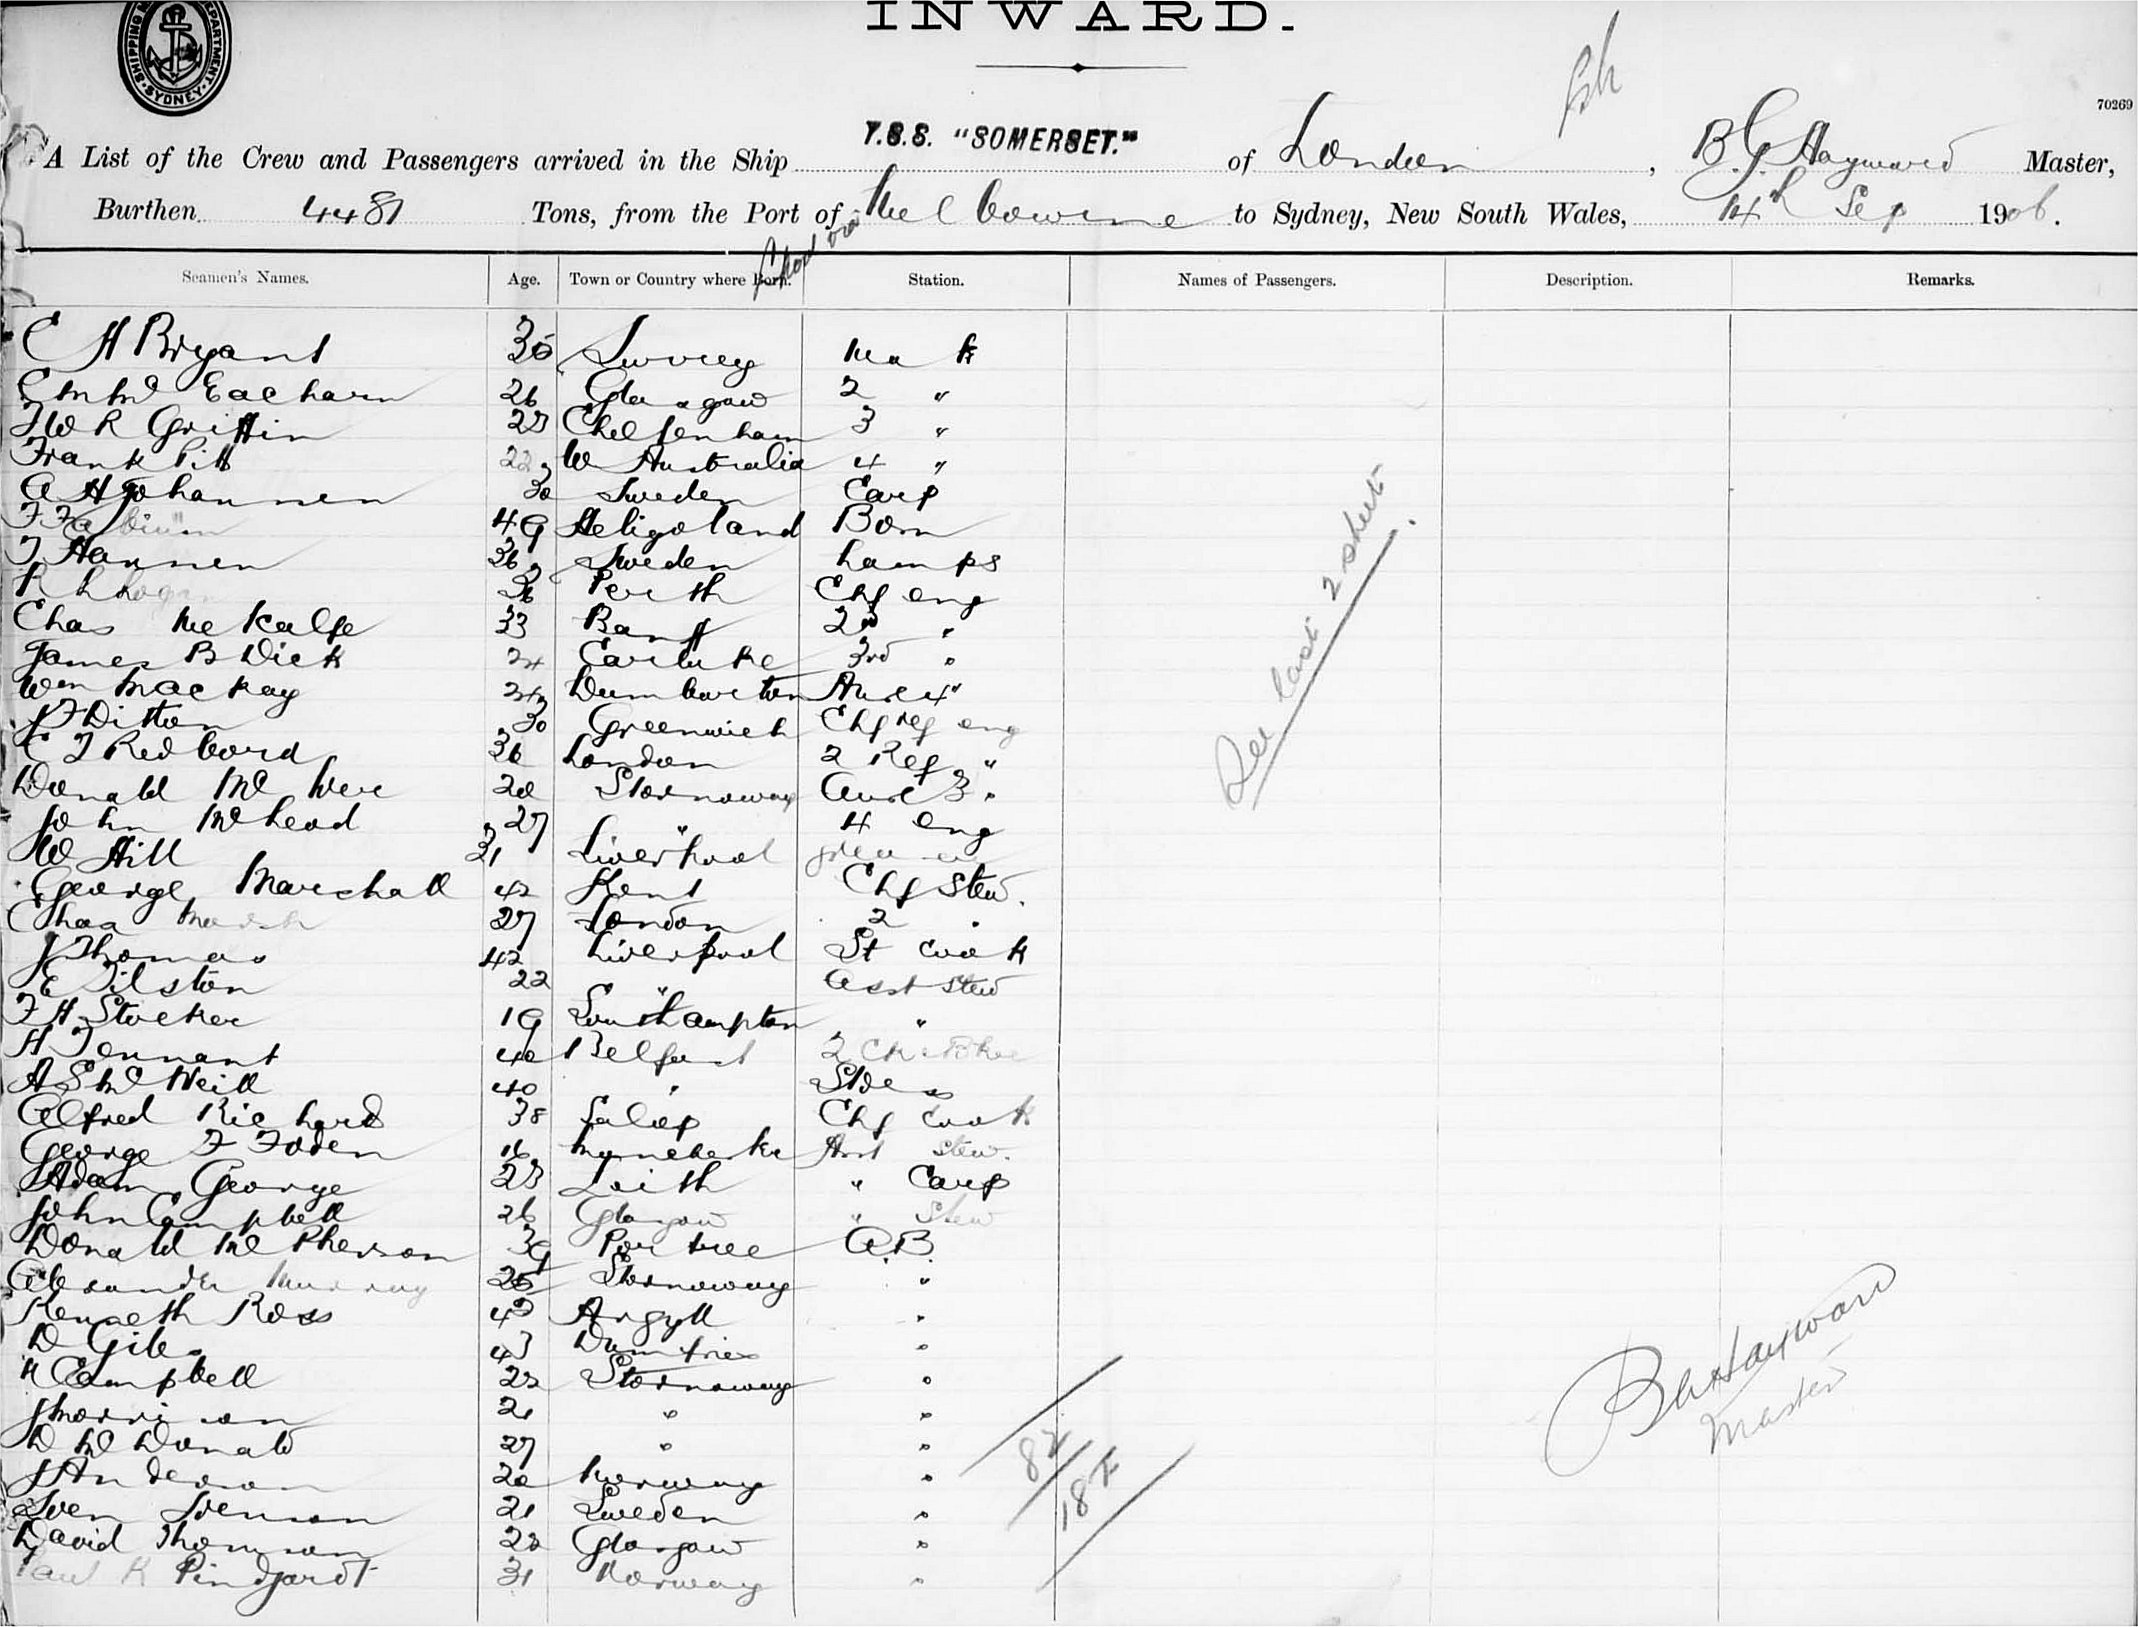 INWARD.
SHIPPING DEPARTMENT SYDNEY
70269
T.S.S. "SOMERSET."
A List of the Crew and Passengers arrived in the Ship of London, B. G. Hayward Master,
Burthen 4481 Tons, from the Port of Melbourne to Sydney, New South Wales, 14th Sep 1906.
Seamen's Names. Age. Town or Country where Born. Station. Names of Passengers. Description. Remarks.
C H Bryant 36 Surrey Mate
Mc Eacharn 26 Glasgow 2 "
F W R Griffin 23 Cheltenham 3 "
Frank Pitt 22 W Australia 4 "
A H Johannsen 30 Sweden Carp
49 Heligoland Bosn
Hansen 36 Sweden Lamps
R L Logan 36 Perth Chf eng
Chas Metkalfe 33 Banff 2nd "
James B Dick 24 Carluke 3rd "
Wm Mackay 24 Dumbarton Aux 4 "
J F Ditton 30 Greenwich Chf ref eng
C J Redbond 36 London 2 Ref "
Donald Mc Iver 20 Stornoway Aux 3 "
John McLeod 27 " 4 eng
W Hill 31 Liverpool
George Marshall 42 Kent Chf Stew.
Chas Marsh 27 London 2 "
J Thomas 42 Liverpool St Cook
E Tilston 22 " Asst Stew
F H Stocker 19 Southampton "
H Tennant 40 Belfast 2 Ck & Bker
A S McNeill 40 "
Alfred Richards 38 Salop Chf Cook
George F Foden 16 Manchester Asst Stew.
Adam George 23 Leith " Carp
John Campbell 26 Glasgow " Stew
Donald McPherson 39 Portree A.B.
Alexander Murray 25 Stornoway "
Kenneth Ross 42 Argyll "
D Giles 43 Dumfries "
Campbell 22 Stornoway "
J Morrison 21 " "
D McDonald 27 " "
J Anderson 20 Norway "
Sven Svenson 21 Sweden "
David Thomson 22 Glasgow "
Paul K Pindgardt 31 Norway "
See last 2 sheets.
82
18
B G Hayward
Master